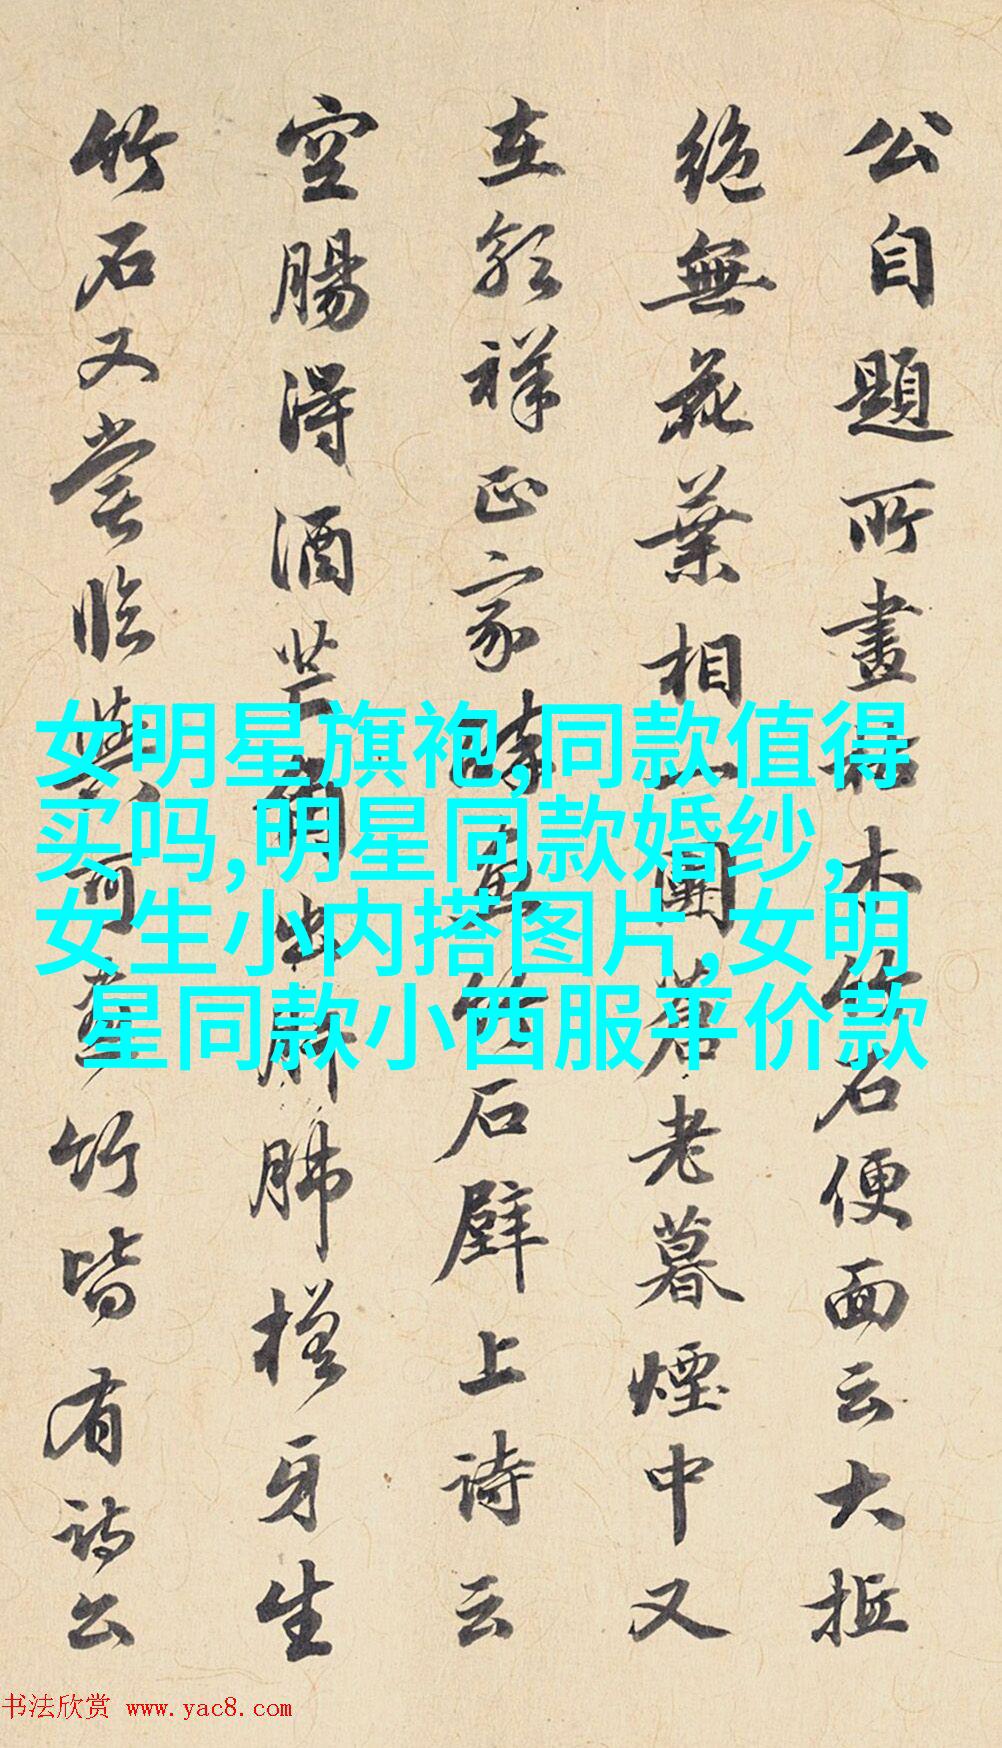 公自題所畫枯木竹石便面云大抵
絶無花葉相一團蒼老暮煙中又
在郭祥正家醉畫竹石壁上詩云
空腸得酒芒角出肝肺槎牙生
竹石又嘗臨與可畫竹皆有詩公
女明星旗袍,同款值得
买吗,明星同款婚纱,
女生小内搭图片,女明
星同款小西服平价款
书法欣赏 www.yac8.com